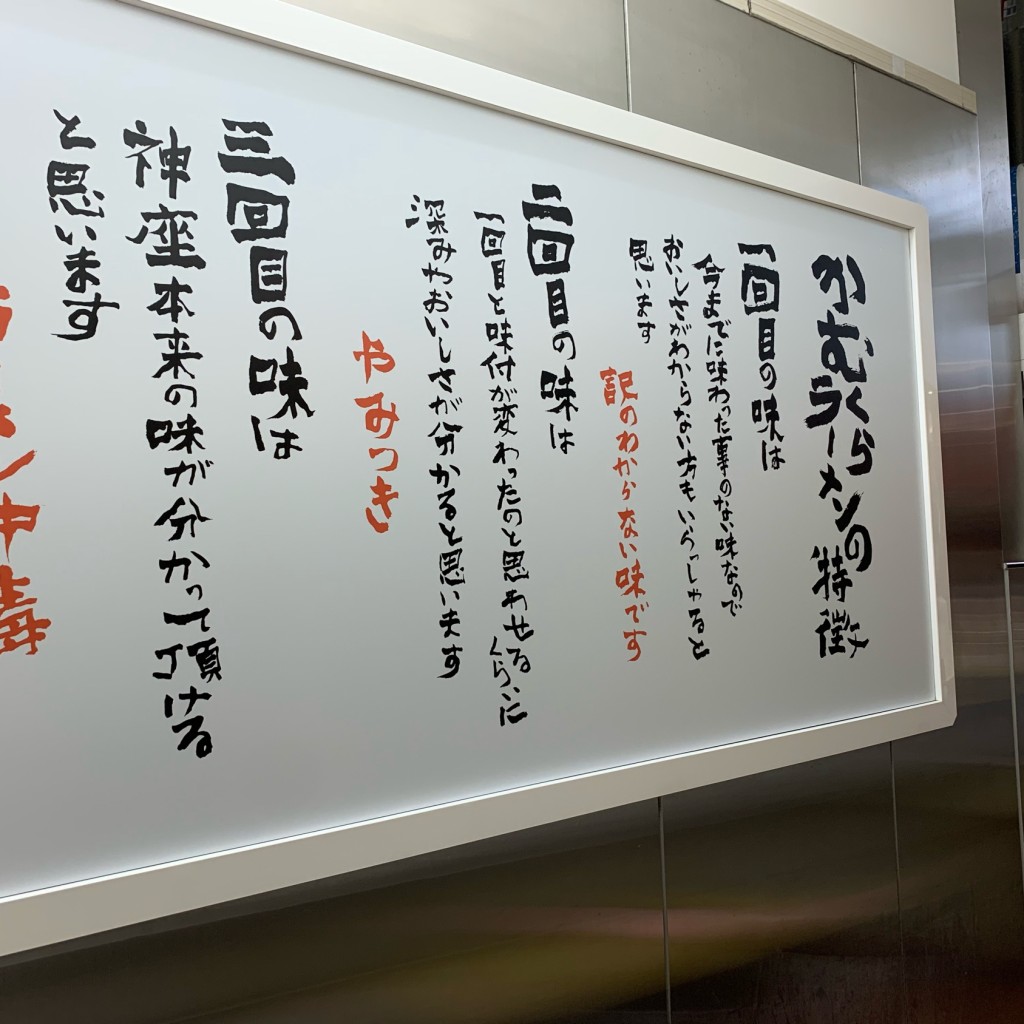 かむくら
ラーメンの特徴
一回目の味は
今までに味わった事のない味なので
おいしさがわからない方もいらっしゃると
思います
訳のわからない味です
二回目の味は
一回目と味付が変わったのと思わせるくらいに
深みやおいしさが分かると思います
やみつき
三回目の味は
神座本来の味が分かって頂ける
と思います